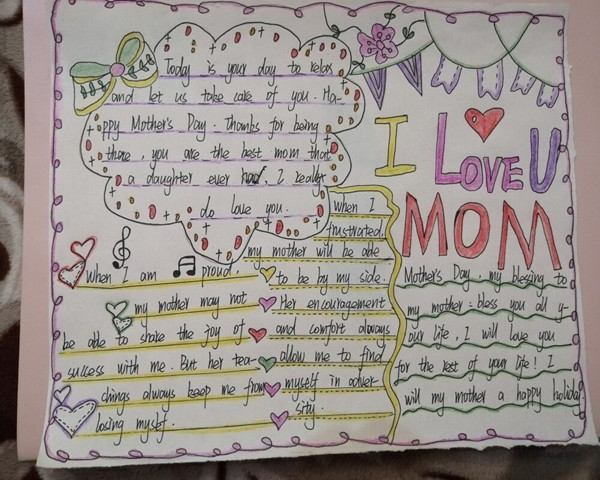 Today is your day to relax
and let us take care of you. Ha-
ppy Mother's Day. Thanks for being
there, you are the best mom that
a daughter ever had. I really
do love you.
I LOVE U
MOM
When I am proud,
my mother may not
be able to share the joy of
success with me. But her tea-
chings always keep me from
losing myself.
When I
frustrated,
my mother will be able
to be by my side.
Her encouragement
and comfort always
allow me to find
myself in adver-
sity.
Mother's Day, my blessing to
my mother: bless you all y-
our life, I will love you
for the rest of your life! I
will my mother a happy holiday